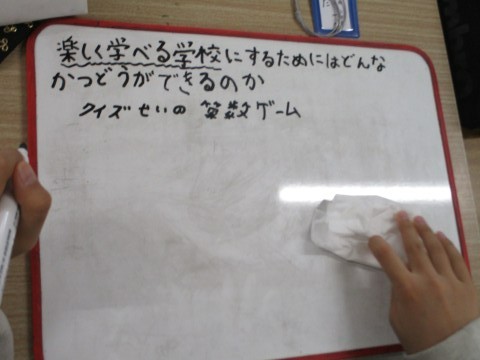 楽しく学べる学校にするためにはどんな
かつどうができるのか
クイズせいの 算数ゲーム